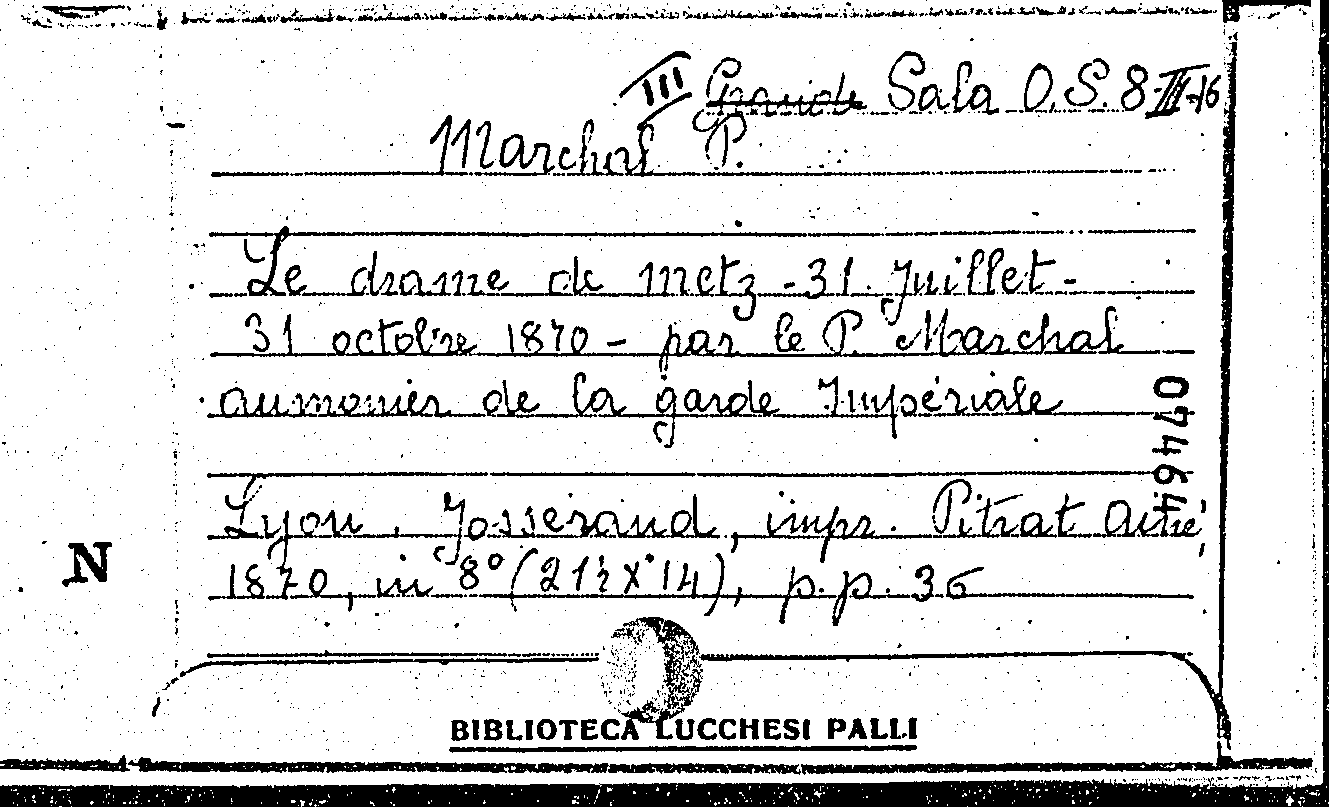 III Grande Sala O.S. 8-III-16
Marchal P.
Le drame de Metz - 31. Juillet -
31 octobre 1870 - par le P. Marchal
aumonier de la garde Impériale
07464
Lyon. Josserand, impr. Pitrat Ainé,
N
1870, in 8° (21½ X 14), p.p. 36
BIBLIOTECA LUCCHESI PALLI